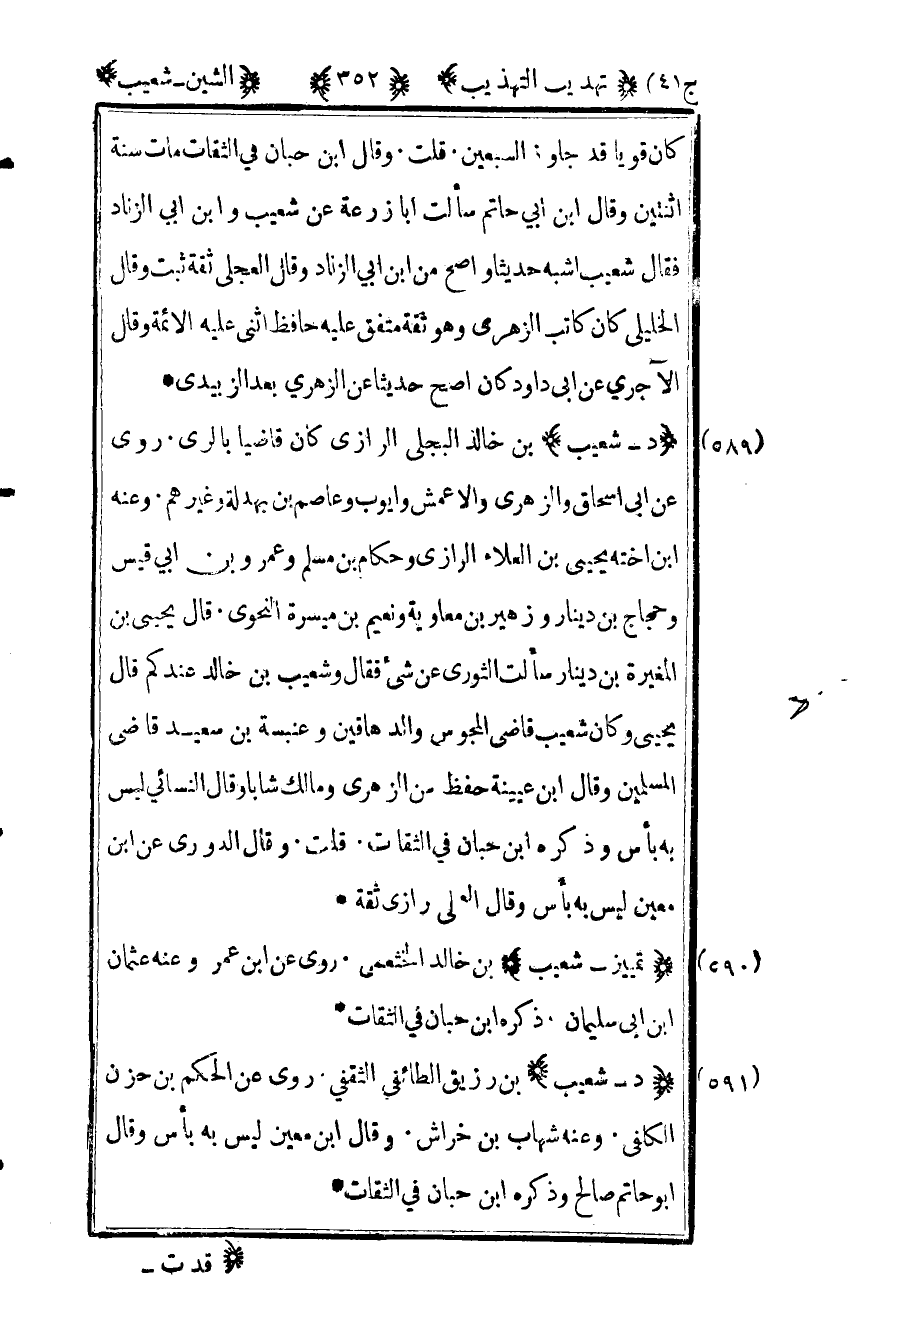 ج(٤) ﴿ تهذيب التهذيب ﴾ ﴿ ٣٥٢ ﴾ ﴿ الشين ـ شعيب ﴾
كان قويا قد جاوز السبعين ٠ قلت ٠ وقال ابن حبان في الثقات مات سنة
اثنتين وقال ابن ابي حاتم سألت ابا زرعة عن شعيب و ابن ابي الزناد
فقال شعيب اشبه حديثا و اصح من ابن ابي الزناد وقال العجلي ثقة ثبت وقال
الخليلي كان كاتب الزهرى وهو ثقة متفق عليه حافظ اثنى عليه الائمة وقال
الآجري عن ابى داود كان اصح حديثا عن الزهري بعد الزبيدى *
(٥٨٩) ﴿ د ـ شعيب ﴾ بن خالد البجلى الرازى كان قاضيا بالرى ٠ روى
عن ابى اسحاق والزهرى والاعمش وايوب وعاصم بن بهدلة وغيرهم ٠ وعنه
ابن اخته يحيى بن العلاء الرازى وحكام بن مسلم وعمرو بن ابي قيس
وحجاج بن دينار و زهير بن معاوية ونعيم بن ميسرة النحوى ٠ قال يحيى بن
المغيرة بن دينار سألت الثورى عن شئ فقال و شعيب بن خالد عندكم قال
يحيى وكان شعيب قاضى المجوس والدهاقين و عنبسة بن سعيد قاضى
المسلمين وقال ابن عيينة حفظ من الزهرى ومالك شابا وقال النسائي ليس
به بأس و ذكره ابن حبان في الثقات ٠ قلت ٠ وقال الدورى عن ابن
معين ليس به بأس وقال العجلى رازى ثقة *
(٥٩٠) ﴿ تمييز ـ شعيب ﴾ بن خالد الخثعمى ٠ روى عن ابن عمر وعنه عثمان
ابن ابى سليمان ٠ ذكره ابن حبان في الثقات *
(٥٩١) ﴿ د ـ شعيب ﴾ بن رزيق الطائفي الثقفي ٠ روى عن الحكم بن حزن
الكلفى ٠ وعنه شهاب بن خراش ٠ وقال ابن معين ليس به بأس وقال
ابو حاتم صالح وذكره ابن حبان في الثقات *
﴿ قدت ـ